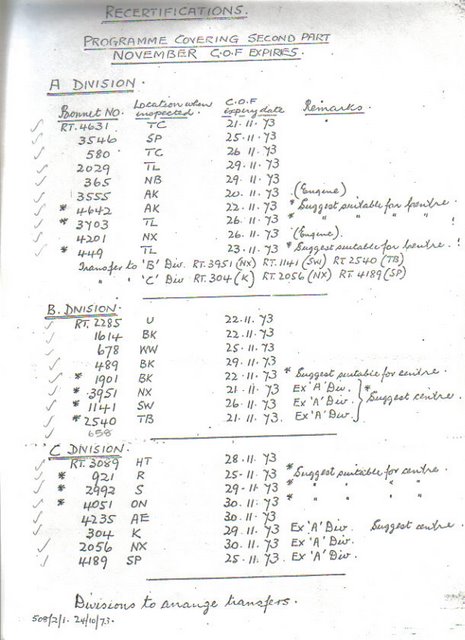 RECERTIFICATIONS.
PROGRAMME COVERING SECOND PART
NOVEMBER C.O.F EXPIRES.
A DIVISION.
Bonnet NO. Location when inspected. C.O.F expiry date Remarks.
RT. 4631 TC 21.11.73
3546 SP 25.11.73
580 TC 26 11.73
2029 TL 29.11.73
365 NB 29.11.73
3555 AK 20.11.73 (Engine)
* 4642 AK 22.11.73 * Suggest suitable for centre
* 3703 TL 26.11.73 * " " " !
4201 NX 26.11.73 (Engine).
* 449 TL 23.11.73 * Suggest suitable for centre.!
Transfer to 'B' Div. RT.3951 (NX) RT.1141 (SW) RT 2540 (TB)
" " 'C' Div RT.304 (K) RT.2056 (NX) RT 4189 (SP)
B. DIVISION
RT. 2285 U 22.11.73
1614 BK 22.11.73
678 WW 25.11.73
489 BK 29.11.73
* 1901 BK 22.11.73 * Suggest suitable for centre
* 3951 NX 21.11.73 Ex 'A' Div.
* 1141 SW 26.11.73 Ex 'A' Div. * Suggest centre.
* 2540 TB 21.11.73. Ex 'A' Div.
658
C DIVISION
RT. 3089 HT 28.11.73
* 921 R 25.11.73 * Suggest suitable for centre
* 2992 S 29.11.73 * " " "
* 4051 ON 30.11.73 * " " "
4235 AE 30.11.73
304 K 29.11.73 Ex 'A' Div. Suggest centre.
2056 NX 30.11.73 Ex 'A' Div.
4189 SP 25.11.73 Ex 'A' Div.
Divisions to arrange transfers.
508/2/1. 24/10/73.